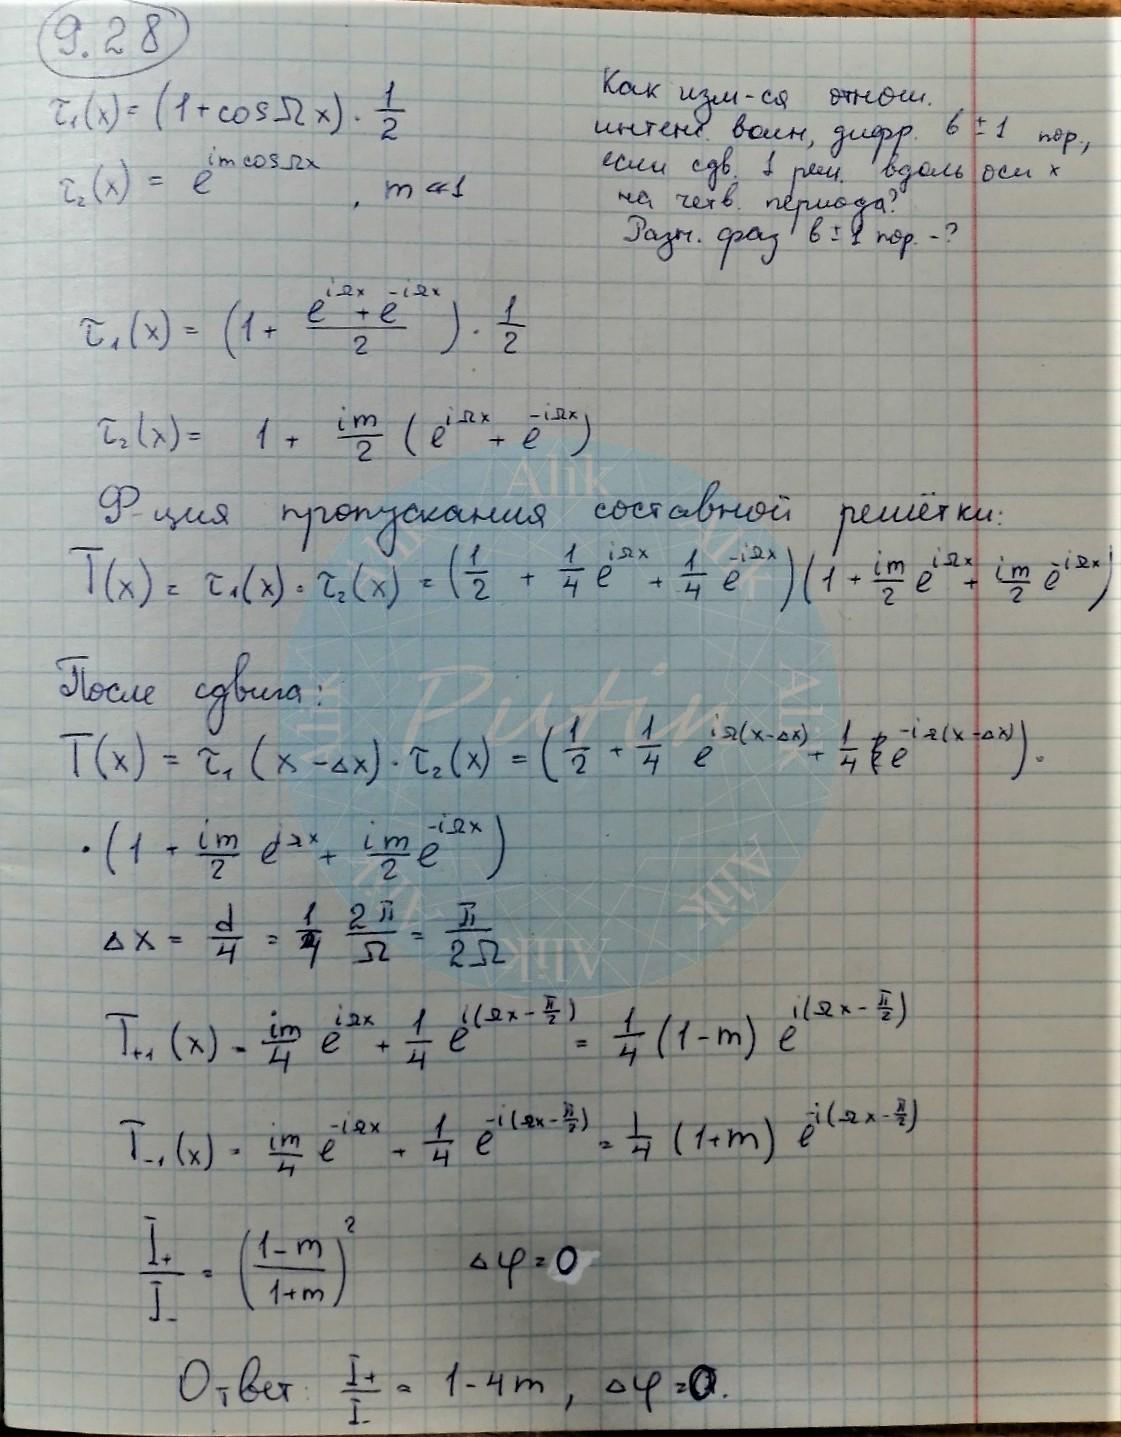 9.28
τ₁(x) = (1+cosΩx)·1/2
τ₂(x) = e^{im cosΩx}, m ≪ 1
Как изм-ся отнош.
интенс. волн, дифр. в ±1 пор.,
если сдв. 1 реш. вдоль оси x
на четв. периода?
Разн. фаз в ±1 пор. -?
τ₁(x) = (1 + (e^{iΩx} + e^{-iΩx})/2)·1/2
τ₂(x) = 1 + im/2 (e^{iΩx} + e^{-iΩx})
Ф-ция пропускания составной решётки:
T(x) = τ₁(x)·τ₂(x) = (1/2 + 1/4 e^{iΩx} + 1/4 e^{-iΩx})(1 + im/2 e^{iΩx} + im/2 e^{-iΩx})
После сдвига:
T(x) = τ₁(x-Δx)·τ₂(x) = (1/2 + 1/4 e^{iΩ(x-Δx)} + 1/4 e^{-iΩ(x-Δx)})·
·(1 + im/2 e^{iΩx} + im/2 e^{-iΩx})
Δx = d/4 = 1/4 2π/Ω = π/2Ω
T₊₁(x) = im/4 e^{iΩx} + 1/4 e^{i(Ωx-π/2)} = 1/4 (1-m) e^{i(Ωx-π/2)}
T₋₁(x) = im/4 e^{-iΩx} + 1/4 e^{-i(Ωx-π/2)} = 1/4 (1+m) e^{-i(Ωx-π/2)}
I₊/I₋ = ((1-m)/(1+m))² Δφ = 0
Ответ: I₊/I₋ = 1-4m, Δφ = 0.
Alik
Alik
Alik
Putin
Alik
Alik
Alik
Alik
Alik